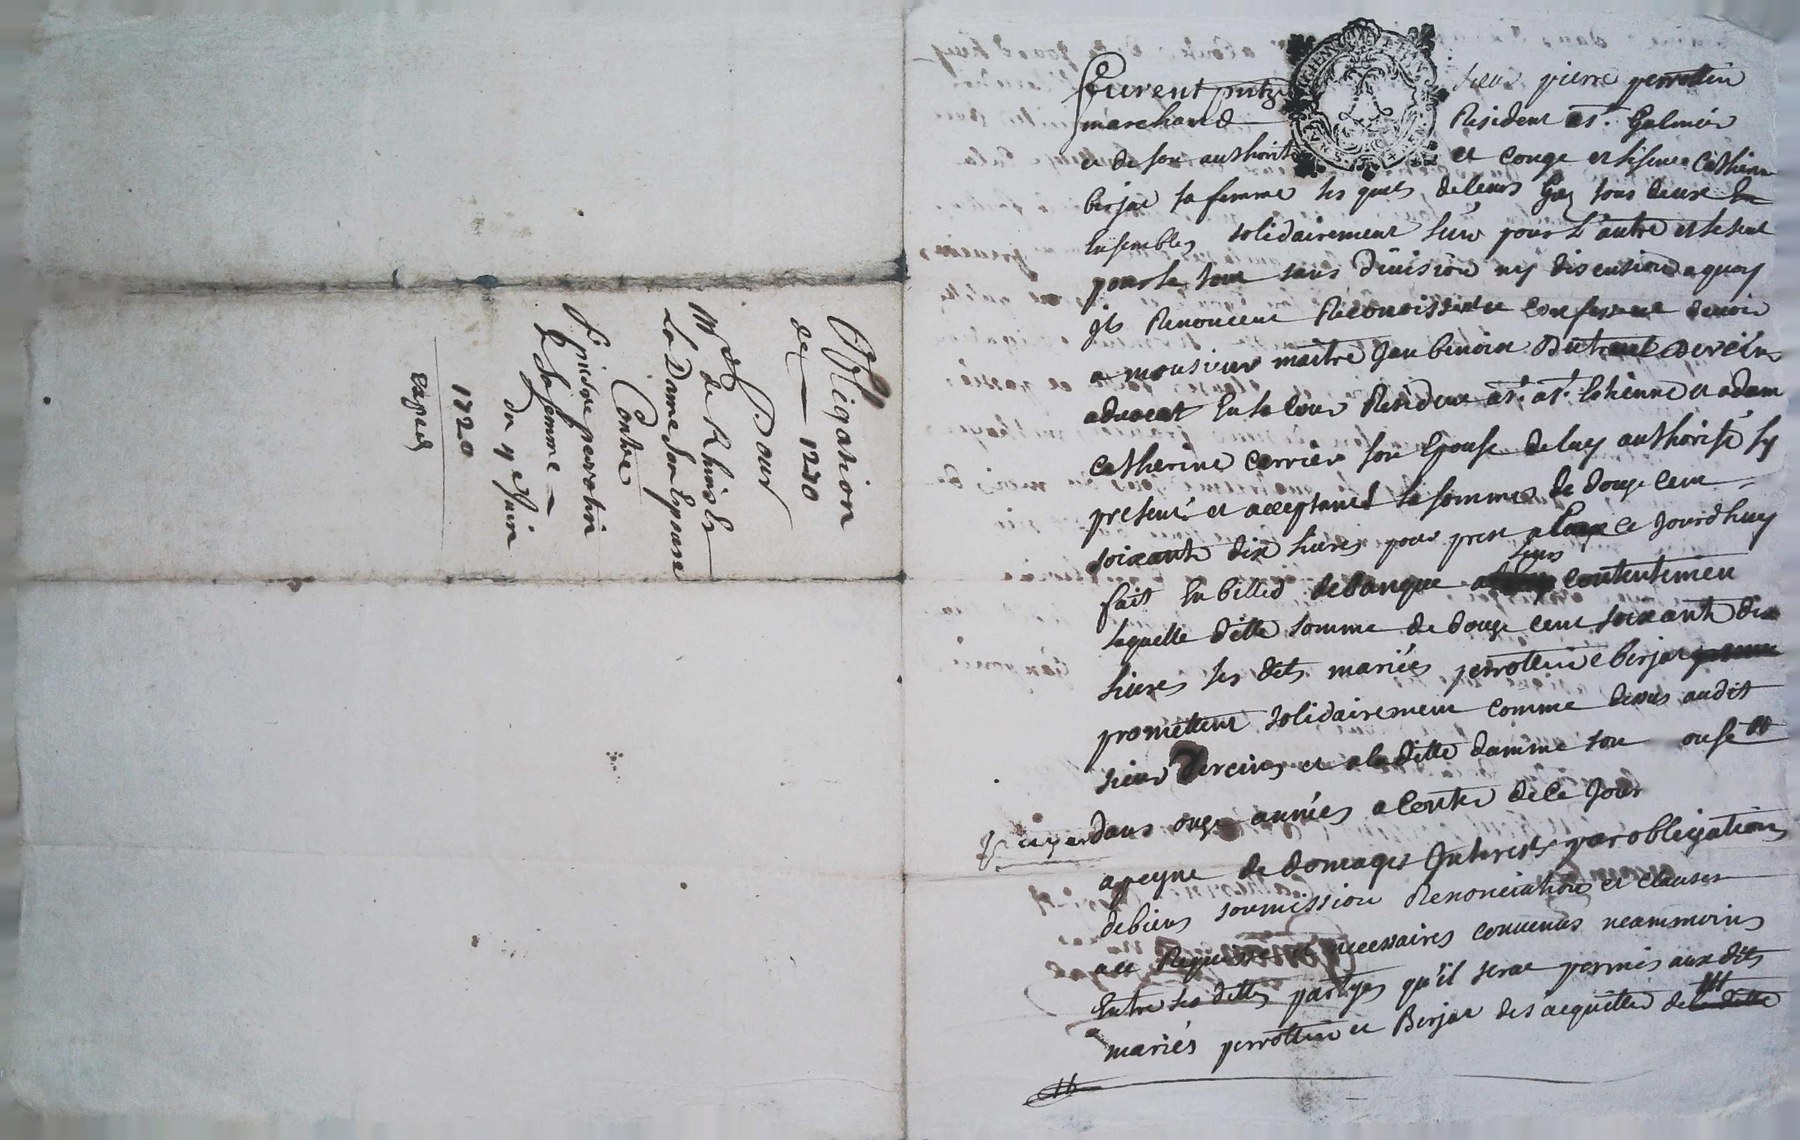 Obligation
de — 1270
Pour
Mr Me de Rhins Et
La Dame Son Epouse
Contre
Sr pierre perrotin
& Sa femme —
du 9e Juin
1720
furent putz sieur pierre perrottin
marchand Resident a St. Galmier
et de son authorité et conge et
berjat sa femme les quels de leurs gez tous deux
Ensembles solidairement l'un pour l'autre et le seul
pour le tout sans division ny discution a quoy
ils Renoncent Reconoissent et confessent devoir
a monsieur maitre Jan benoist
advocat En la Cour Resident a St. Ethienne et a dam
Catherine Carrier son Epouse de luy authorisé sy
présent et acceptant la sommes de douze cent
soixante dix livres pour prest a ce Jourd huy
fait En billed de banque leurs contentement
laquelle ditte somme de douze cent soixante dix
livres les dits mariés perrottin e berjat
promettent solidairement comme dessus audit
sieur Dercins et a la ditte damme son
payer dans onze années a Conter de Ce Jour
a peyne de domages Interests par obligation
de biens soumission Renonciation et clauses
a ce Requises et necessaires convenus neammoins
Entre les dittes partyes qu'il serat permis aux dits
mariés perrottin et Berjat des acquitter de